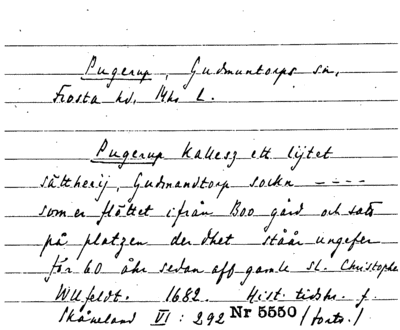 Pugerup, Gudmuntorps sn,
Frosta hd, Mhs L.
Pugerup kallesz ett lijtet
sättherij, Gudmandtorp sockn ----
som er flöttet ifrån Boo gård och satt
på platzen der dhet ståår ungefer
för 60 åhr sedan aff gamle sl. Christopher
Ulfeldt. 1682. Hist. tidskr. f.
Skåneland VI : 292 Nr 5550 /forts./